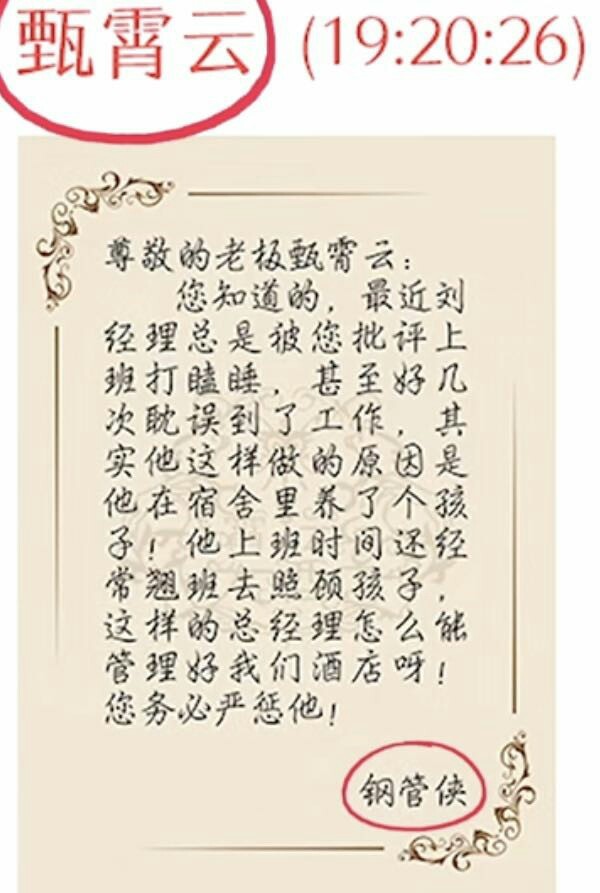 甄霄云 (19:20:26)
尊敬的老板甄霄云：
您知道的，最近刘
经理总是被您批评上
班打瞌睡，甚至好几
次耽误到了工作，其
实他这样做的原因是
他在宿舍里养了个孩
子！他上班时间还经
常翘班去照顾孩子，
这样的总经理怎么能
管理好我们酒店呀！
您务必严惩他！
钢管侠